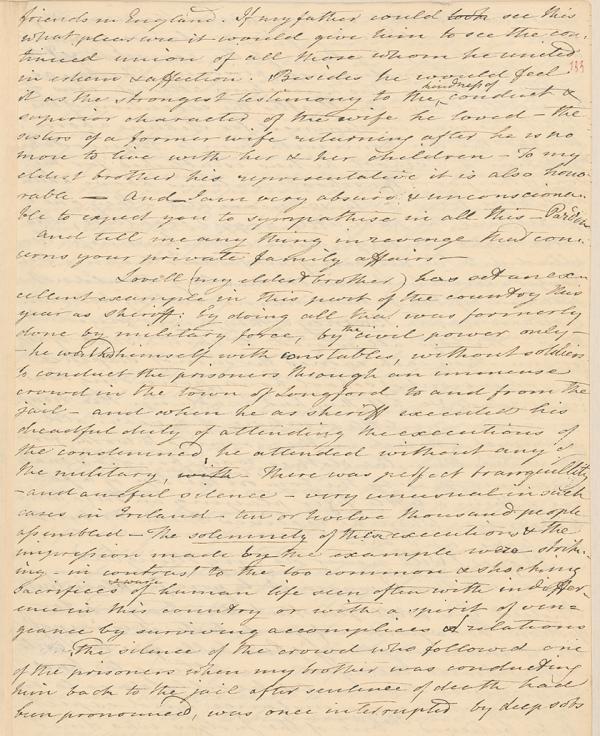 friends in England. If my father could look see this
what pleasure it would give him to see the con-
tinued union of all those whom he united
in esteem & affection. Besides he would feel 133
it as the strongest testimony to the kindness of conduct &
superior character of the wife he loved – the
sisters of a former wife returning after he is no
more to live with her & her children – To my
eldest brother his representative it is also hono-
rable – And I am very absurd & unconsciona-
ble to expect you to sympathise in all this – Pardon
and tell me any thing in revenge that con-
cerns your private family affairs –
Lovell (my eldest brother) has set an ex-
cellent example in this part of the country this
year as sheriff: by doing all that was formerly
done by military force, by the civil power only –
– he himself with constables, without soldiers
to conduct the prisoners through an immense
crowd in the town of Longford to and from the
jail – and when he as sheriff executed his
dreadful duty of attending the executions of
the condemned, he attended without any of
the military, with – There was perfect tranquillity
– and an awful silence – very unusual in such
cases in Ireland – ten or twelve thousand people
assembled – The solemnity of these executions & the
impression made by the example were strik-
ing – in contrast to the too common & shocking
sacrifices & waste of human life seen often with indiffer-
ence in this country or with a spirit of ven-
geance by surviving accomplices or relations
The silence of the crowd who followed one
of the prisoners when my brother was conducting
him back to the jail after sentence of death had
been pronounced, was once interrupted by deep sobs